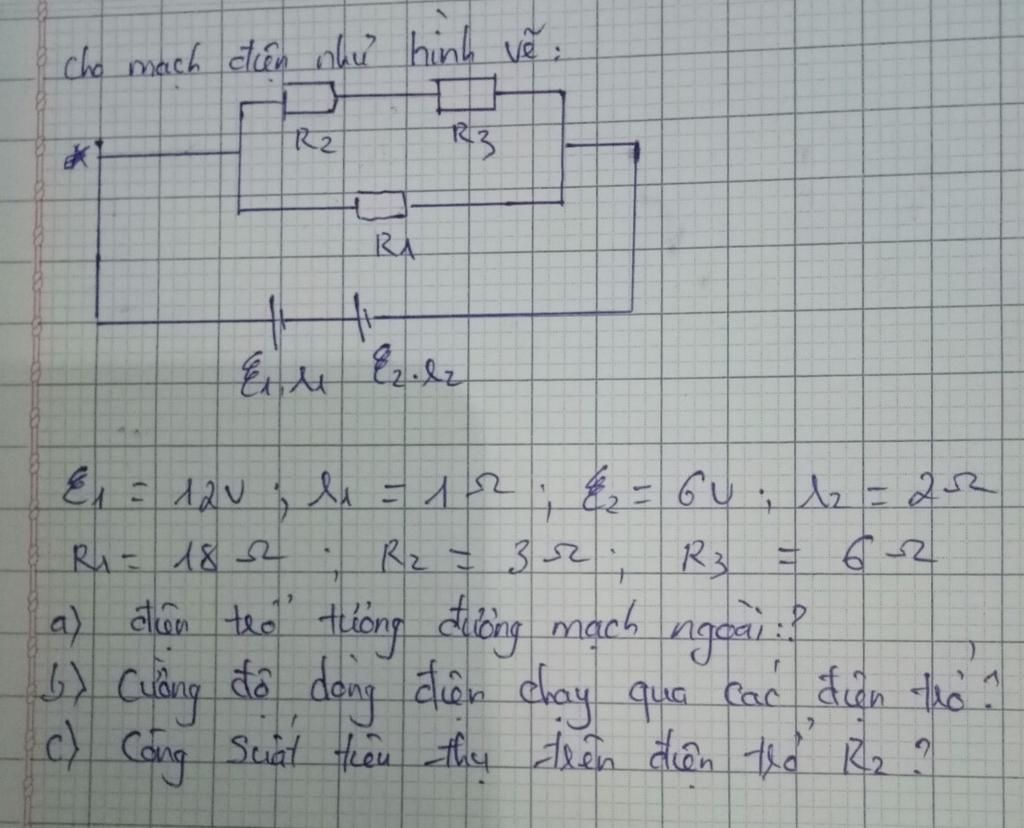 Cho mạch điện như hình vẽ:
R2 R3
R1
ξ1, r1 ξ2. r2
ξ1 = 12V ; r1 = 1Ω ; ξ2 = 6V ; r2 = 2Ω
R1 = 18Ω ; R2 = 3Ω ; R3 = 6Ω
a) điện trở tương đương mạch ngoài:?
b) Cường độ dòng điện chạy qua các điện trở?
c) Công suất tiêu thụ trên điện trở R2?